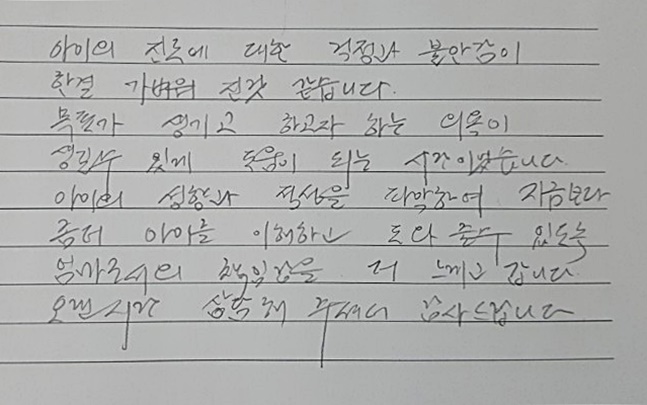 아이의 진로에 대한 걱정과 불안감이
한결 가벼워 진것 같습니다.
목표가 생기고 하고자 하는 의욕이
생길수 있게 도움이 되는 시간이었습니다.
아이의 성향과 적성을 파악하여 지금보다
좀더 아이를 이해하고 도와 줄수 있도록
엄마로서의 책임감을 더 느끼고 갑니다
오랜시간 상담해 주셔서 감사드립니다